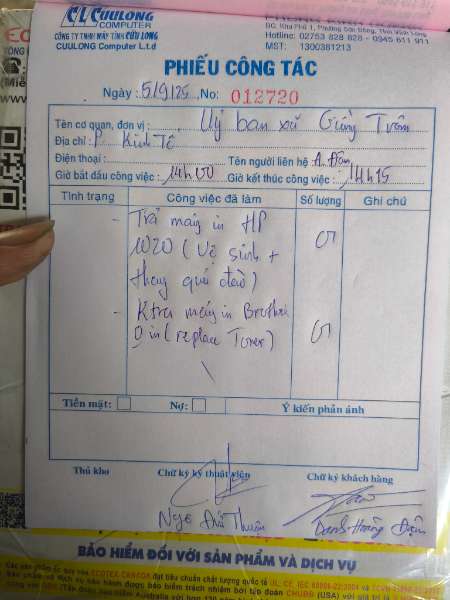 CL CUULONG
COMPUTER
CÔNG TY TNHH MÁY TÍNH CỬU LONG
CUULONG Computer L.t.d
Hotline: 02753 828 828 - 0945 611 911
MST: 1300381213
PHIẾU CÔNG TÁC
Ngày: 5/9/25 No: 012720
Tên cơ quan, đơn vị: Uỷ ban xã Giồng Trôm
Địa chỉ: P Kinh Tế
Điện thoại: Tên người liên hệ A. Điền
Giờ bắt đầu công việc: 14h00 Giờ kết thúc công việc: 14h15
Tình trạng Công việc đã làm Số lượng Ghi chú
- Trả máy in HP
1020 (Vệ sinh + 01
thay quả đào)
- Ktra máy in Brother
0 in (replace Toner) 01
Tiền mặt: Nợ: Ý kiến phản ánh
Thủ kho Chữ ký kỹ thuật viên Chữ ký khách hàng
Ngô Đức Thuận Hoàng
BẢO HIỂM ĐỐI VỚI SẢN PHẨM VÀ DỊCH VỤ